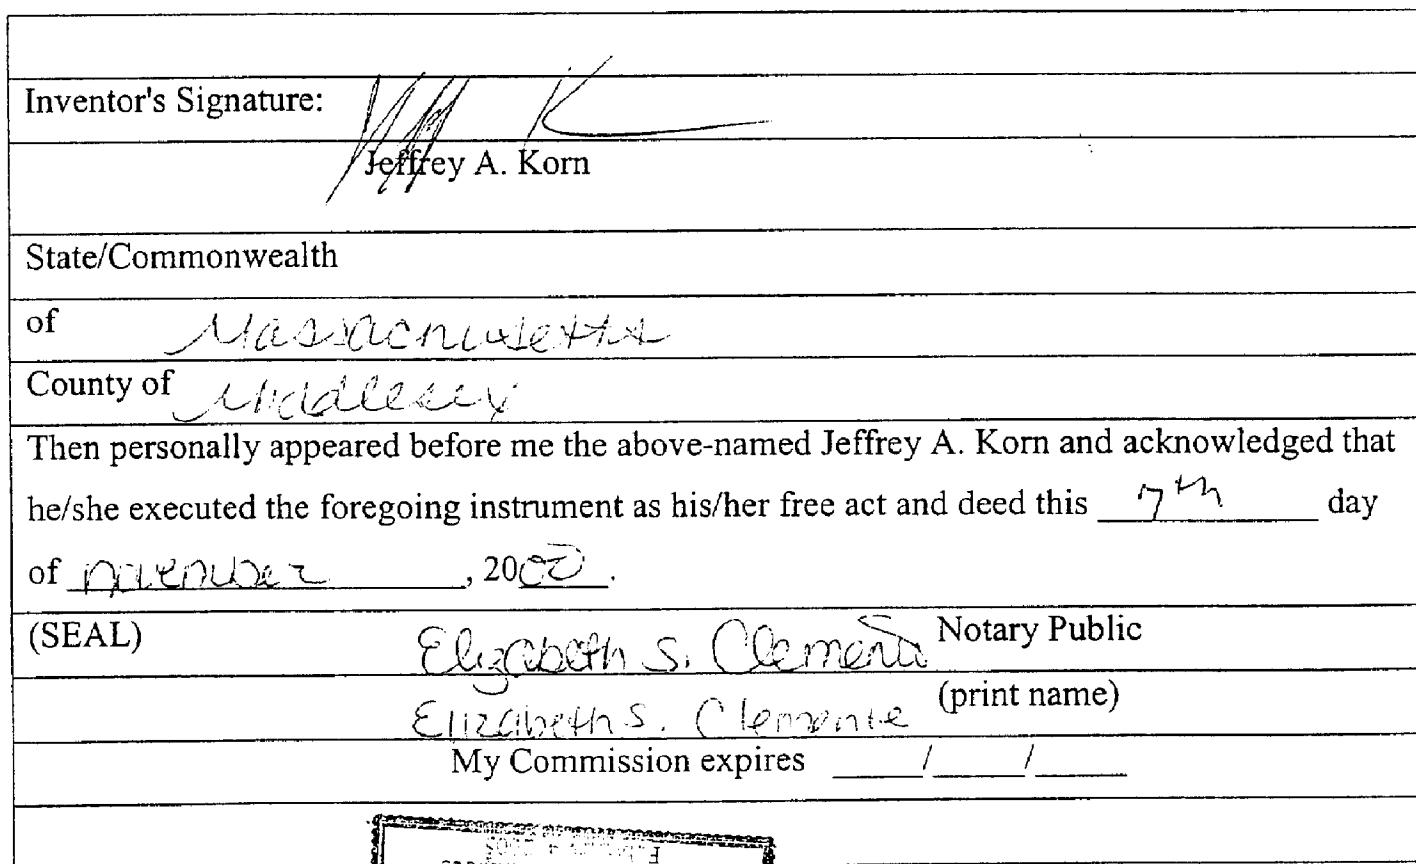 Inventor's Signature:
Jeffrey A. Korn
State/Commonwealth
of Massachusetts
County of Middlesex
Then personally appeared before me the above-named Jeffrey A. Korn and acknowledged that
he/she executed the foregoing instrument as his/her free act and deed this 7th day
of november, 2000.
(SEAL) Elizabeth S. Clemente Notary Public
Elizabeth S. Clemente (print name)
My Commission expires ___/___/___